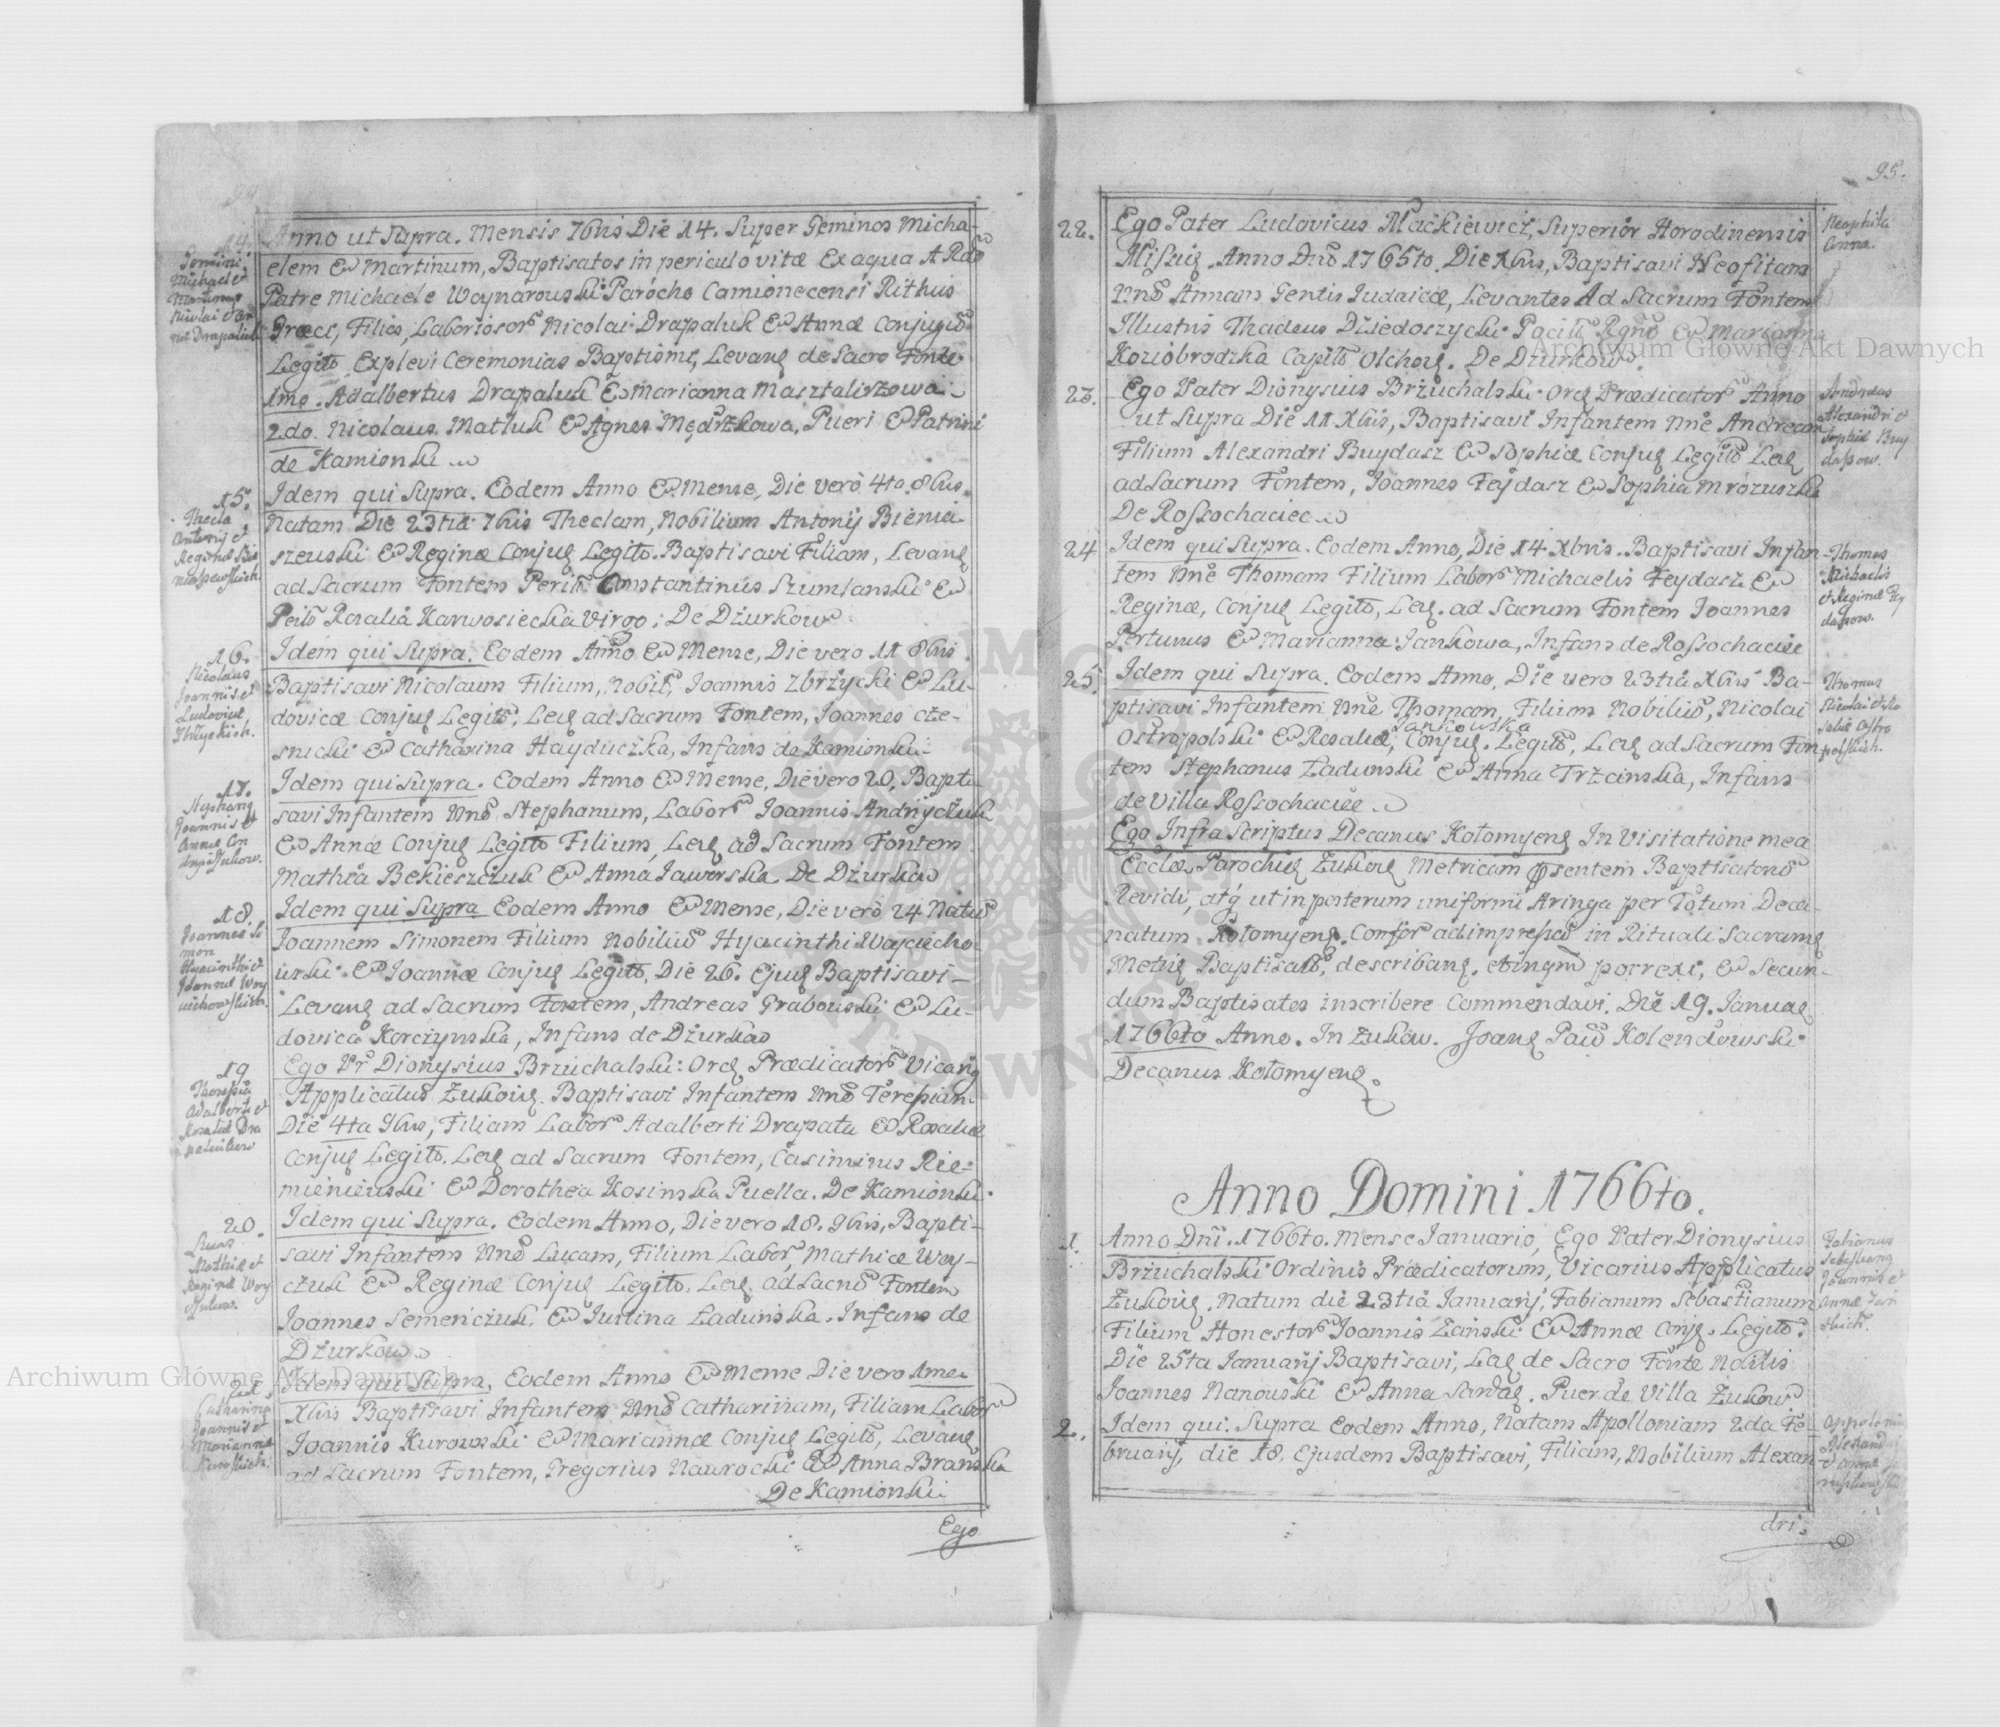 14.
Gemini
Michael et
Martinus
Nicolai et An
nae Drapaluk
Anno ut Supra. Mensis 7bris Die 14. Super Geminos Micha-
elem & Martinum, Baptisatos in periculo vitæ Ex aqua A Rdo
Patre Michaele Woynarouski Parocho Camionecensi Rithus
Græci, Filios, Laboriosor Nicolai Drapaluk & Annæ Conjugũ
Legitõ Explevi Ceremonias Baptismi, Levanȩ de Sacro Fonte
1mo. Adalbertus Drapaluk & Marianna Masztalirzowa
2do. Nicolaus Matluk & Agnes Mędrzkowa, Pueri & Patrini
de Kamionki
15.
Thecla
Antonij et
Reginæ Bie
niaszewskich
Idem qui Supra. Eodem Anno & Mense, Die verò 4ta 8bris
Natam Die 23tia 7bris Theclam, Nobilium Antonij Bienia-
szeuski & Reginæ Conjuȩ Legitõ. Baptisavi Filiam, Levanȩ
ad Sacrum Fontem Peritõ Constantinus Szumlanski &
Peritõ Rosalia Karwosiecka Virgo; De Dżurkow
16.
Nicolaus
Joannis et
Ludovicæ
Zbrzyckich.
Idem qui Supra. Eodem Anno & Mense, Die vero 11 8bris
Baptisavi Nicolaum Filium, Nobilĩ Joannis Zbrzycki & Lu-
dovicæ Conjuȩ Legitõ, Leȩ ad Sacrum Fontem, Joannes Cze-
snicki & Catharina Hayduczka, Infans de Kamionki
17.
Stephanȩ
Joannis et
Annæ An
dryiczukow.
Idem qui Supra. Eodem Anno & Mense, Die vero 20, Bapti-
savi Infantem Nnẽ Stephanum, Labor Joannis Andryczuk
& Annæ Conjuȩ Legitõ Filium, Leȩ ad Sacrum Fontem
Mathia Bekieszczuk & Anna Jaworska De Dżurkow
18.
Joannes Si
mon
Hyacinthi et
Joannæ Woy
ciechowskich.
Idem qui Supra Eodem Anno & Mense, Die verò 24 Natũ
Joannem Simonem Filium Nobiliũ Hyacinthi Woyciecho-
uski & Joannæ Conjuȩ Legitõ, Die 26. Ejuȩ Baptisavi-
Levanȩ ad Sacrum Fontem, Andreas Grabouski & Lu-
dovica Korczynska, Infans de Dżurkow
19
Theresia
Adalberti et
Rosaliæ Dra
palukow
Ego Pr Dionysius Brzuchalski: Orȩ Prædicator Vicariȩ
Applicatus Żukoviȩ. Baptisavi Infantem Nnẽ Teresiam
Die 4ta 9bris, Filiam Labor Adalberti Drapala & Rosaliæ
Conjuȩ Legitõ. Leȩ ad Sacrum Fontem, Casimirus Rie-
mieniewski & Dorothea Kosinska Puella. De Kamionki.
20.
Lucas
Mathiæ et
Reginæ Woy
czukow.
Idem qui Supra. Eodem Anno, Die vero 18. 9bris, Bapti-
savi Infantem Nnẽ Lucam, Filium Labor, Mathiæ Woy-
czuk & Reginæ Conjuȩ Legitõ. Leȩ ad Sacrũ Fontem
Joannes Semenczuk, & Justina Ładunska. Infans de
Dżurkow
21.
Catharina
Joannis et
Mariannæ
Kurowskich.
Idem qui Supra, Eodem Anno & Mense Die vero 1ma
Xbris Baptisavi Infantem Nnẽ Catharinam, Filiam Labor
Joannis Kurowski & Mariannæ Conjuȩ Legitõ, Levanȩ
ad Sacrum Fontem, Gregorius Naurocki & Anna Branska
De Kamionki
Ego
95.
22.
Ego Pater Ludovicus Mackiewicz, Superior Horodinensis
Missiȩ. Anno Dnĩ 1765to. Die Xbris, Baptisavi Neofitam
Nnẽ Annam Gentis Judaicæ, Levantes Ad Sacrum Fontem
Illustris Thadeus Dziedoszycki Pocilł Rgnĩ & Marianna
Koziobrodzka Capitõ Olchoȩ. De Dżurkow.
Neophita
Anna.
23.
Ego Pater Dionysius Brzuchalski: Orȩ Prædicator Anno
ut Supra Die 11 Xbris, Baptisavi Infantem Nnẽ Andream
Filium Alexandri Buydasz & Sophiæ Conjuȩ Legitõ Leȩ
ad Sacrum Fontem, Joannes Feydasz & Sophia Mrozuszka
De Rossochaciec
Andreas
Alexandri et
Sophiæ Buy
daszow.
24
Idem qui Supra. Eodem Anno, Die 14 Xbris. Baptisavi Infan-
tem Nnẽ Thomam Filium Labor Michaelis Feydasz &
Reginæ, Conjuȩ Legitõ, Leȩ. ad Sacrum Fontem Joannes
Pertunus & Marianna Jankowa, Infans de Rossochaciec
Thomas
Michaelis
et Reginæ Fey
daszow.
25.
Idem qui Supra. Eodem Anno, Die vero 23tia Xbris Ba-
ptisavi Infantem Nnẽ Thomam, Filium Nobiliũ, Nicolai
Jankowska
Ostropolski & Rosaliæ, Conjuȩ. Legitõ, Leȩ ad Sacrum Fon-
tem Stephanus Ładunski & Anna Trzcinska, Infans
de Villa Rossochaciec
Thomas
Nicolai et Ro
saliæ Ostro
polskich.
Ego Infra Scriptus Decanus Kołomyenȩ In Visitatione mea
Ecclæ Parochiȩ Żukoȩ Metricam Præsentem Baptisatorũ
Revidi, atq̃ ut in posterum uniformi Aringa per Totum Deca-
natum Kołomyenȩ. Confor ad impressũ in Rituali Sacramȩ
Metriȩ Baptisatõ, describanȩ, porrexi, & Secun-
dum Baptisatos inscribere Commendavi. Die 19. Januaȩ
1766to Anno. In Żukow. Joanȩ Paũ Kolendowski
Decanus Kołomyenȩ
Anno Domini 1766to.
1.
Anno Dnĩ. 1766to. Mense Januario, Ego Pater Dionysius
Brzuchalski Ordinis Prædicatorum, Vicarius Applicatus
Żukoviȩ. Natum die 23tia Januarij, Fabianum Sebastianum
Filium Honestor Joannis Zanski & Annæ Conjȩ. Legitõ.
Die 25ta Januarij Baptisavi, Leȩ de Sacro Fonte Nobilis
Joannes Nanouski & Anna Sardȩ. Puer de Villa Żukow
Fabianus
Sebastianȩ
Joannis et
Annæ Zan
skich.
2.
Idem qui Supra Eodem Anno, Natam Apolloniam 2da Fe-
bruarij, die 18. Ejusdem Baptisavi, Filiam, Nobilium Alexan-
Appolonia
Alexandri
et Annæ
dri.
Archiwum Główne Akt Dawnych
Archiwum Główne Akt Dawnych